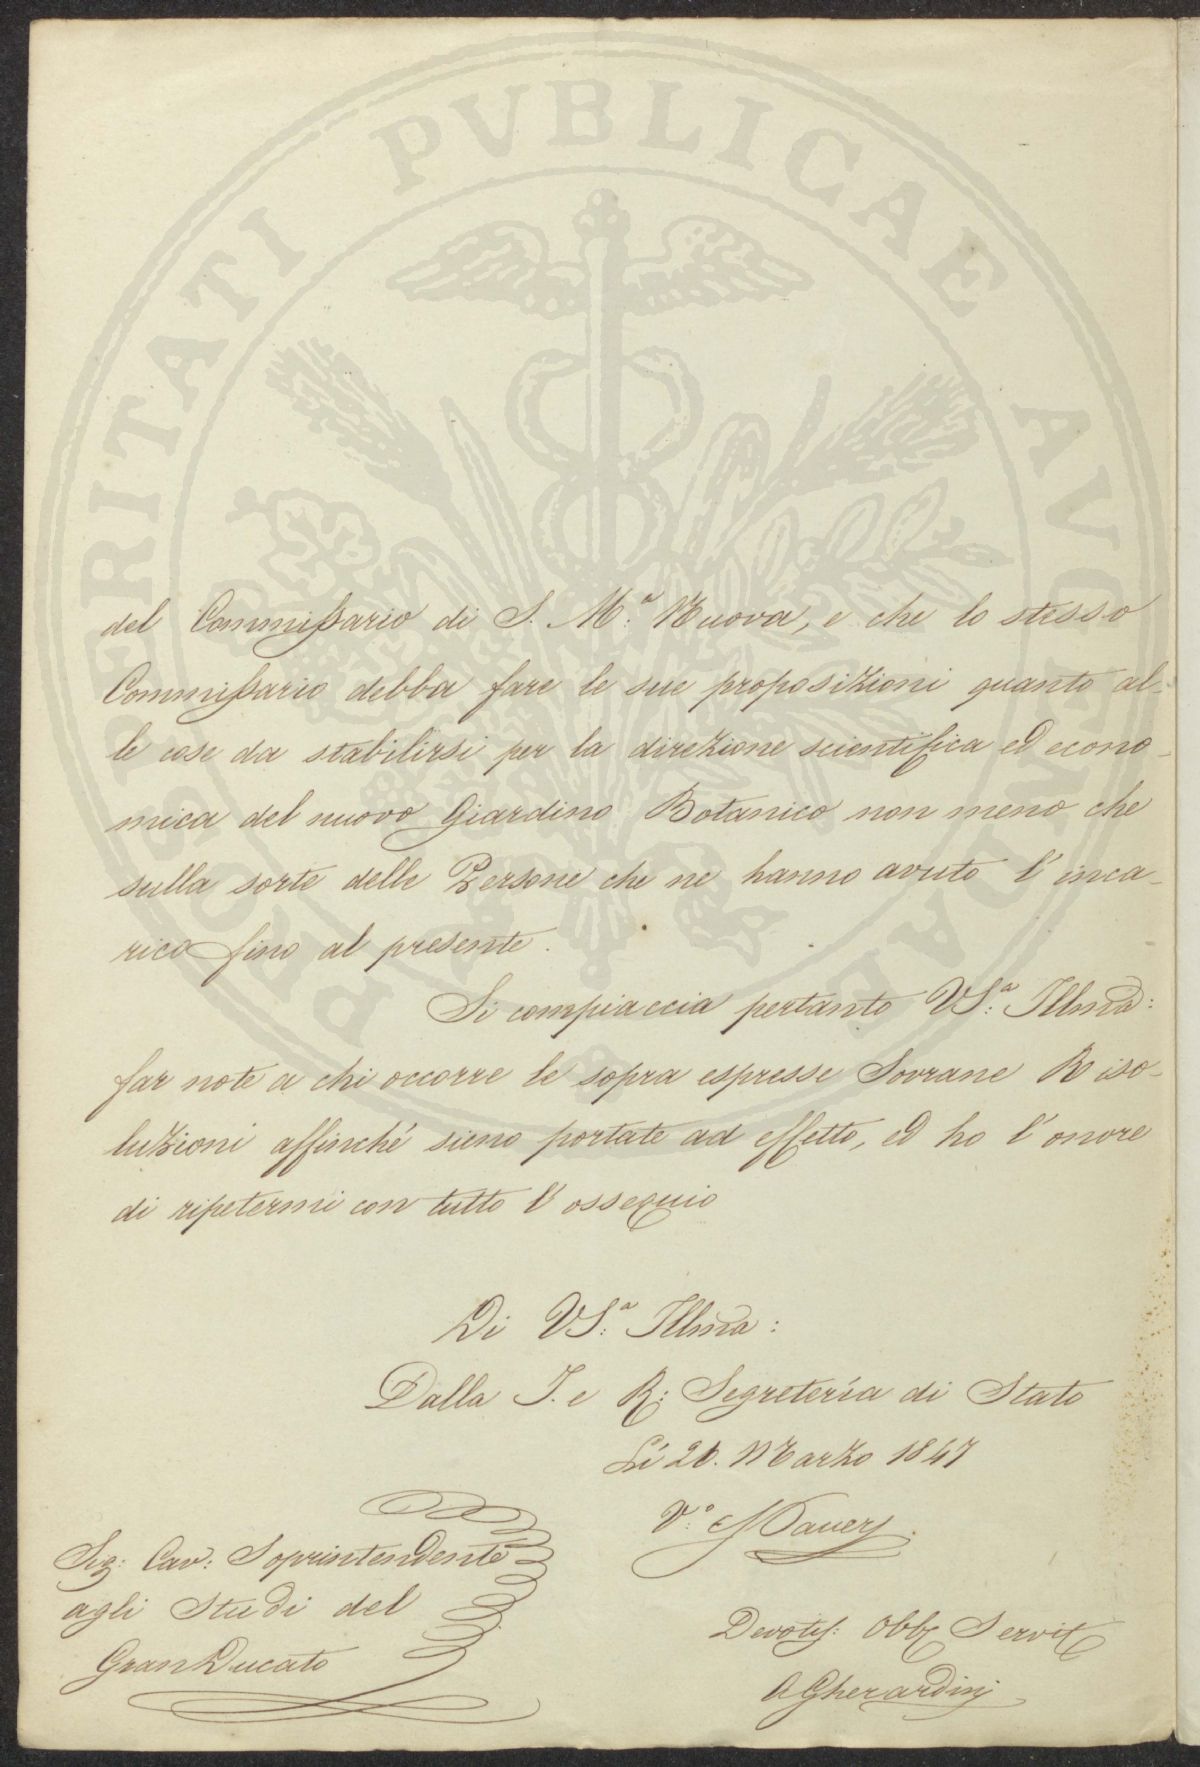 PROSPERITATI PVBLICAE AVGENDAE
del Commissario di S. M.ª Nuova, e che lo stesso
Commissario debba fare le sue proposizioni quanto al-
le cose da stabilirsi per la direzione scientifica ed econo-
mica del nuovo Giardino Botanico non meno che
sulla sorte delle Persone che ne hanno avuto l'inca-
rico fino al presente.
Si compiaccia pertanto VS.ª Illma:
far note a chi occorre le sopra espresse Sovrane Riso-
luzioni affinché sieno portate ad effetto, ed ho l'onore
di ripetermi con tutto l'ossequio
Di VS.ª Illma:
Dalla I. e R: Segretería di Stato
Lí 20. Marzo 1847
V.°
Sig: Cav: Soprintendente
agli Studi del
GranDucato
Devotis: Obb Servit
A Gherardini